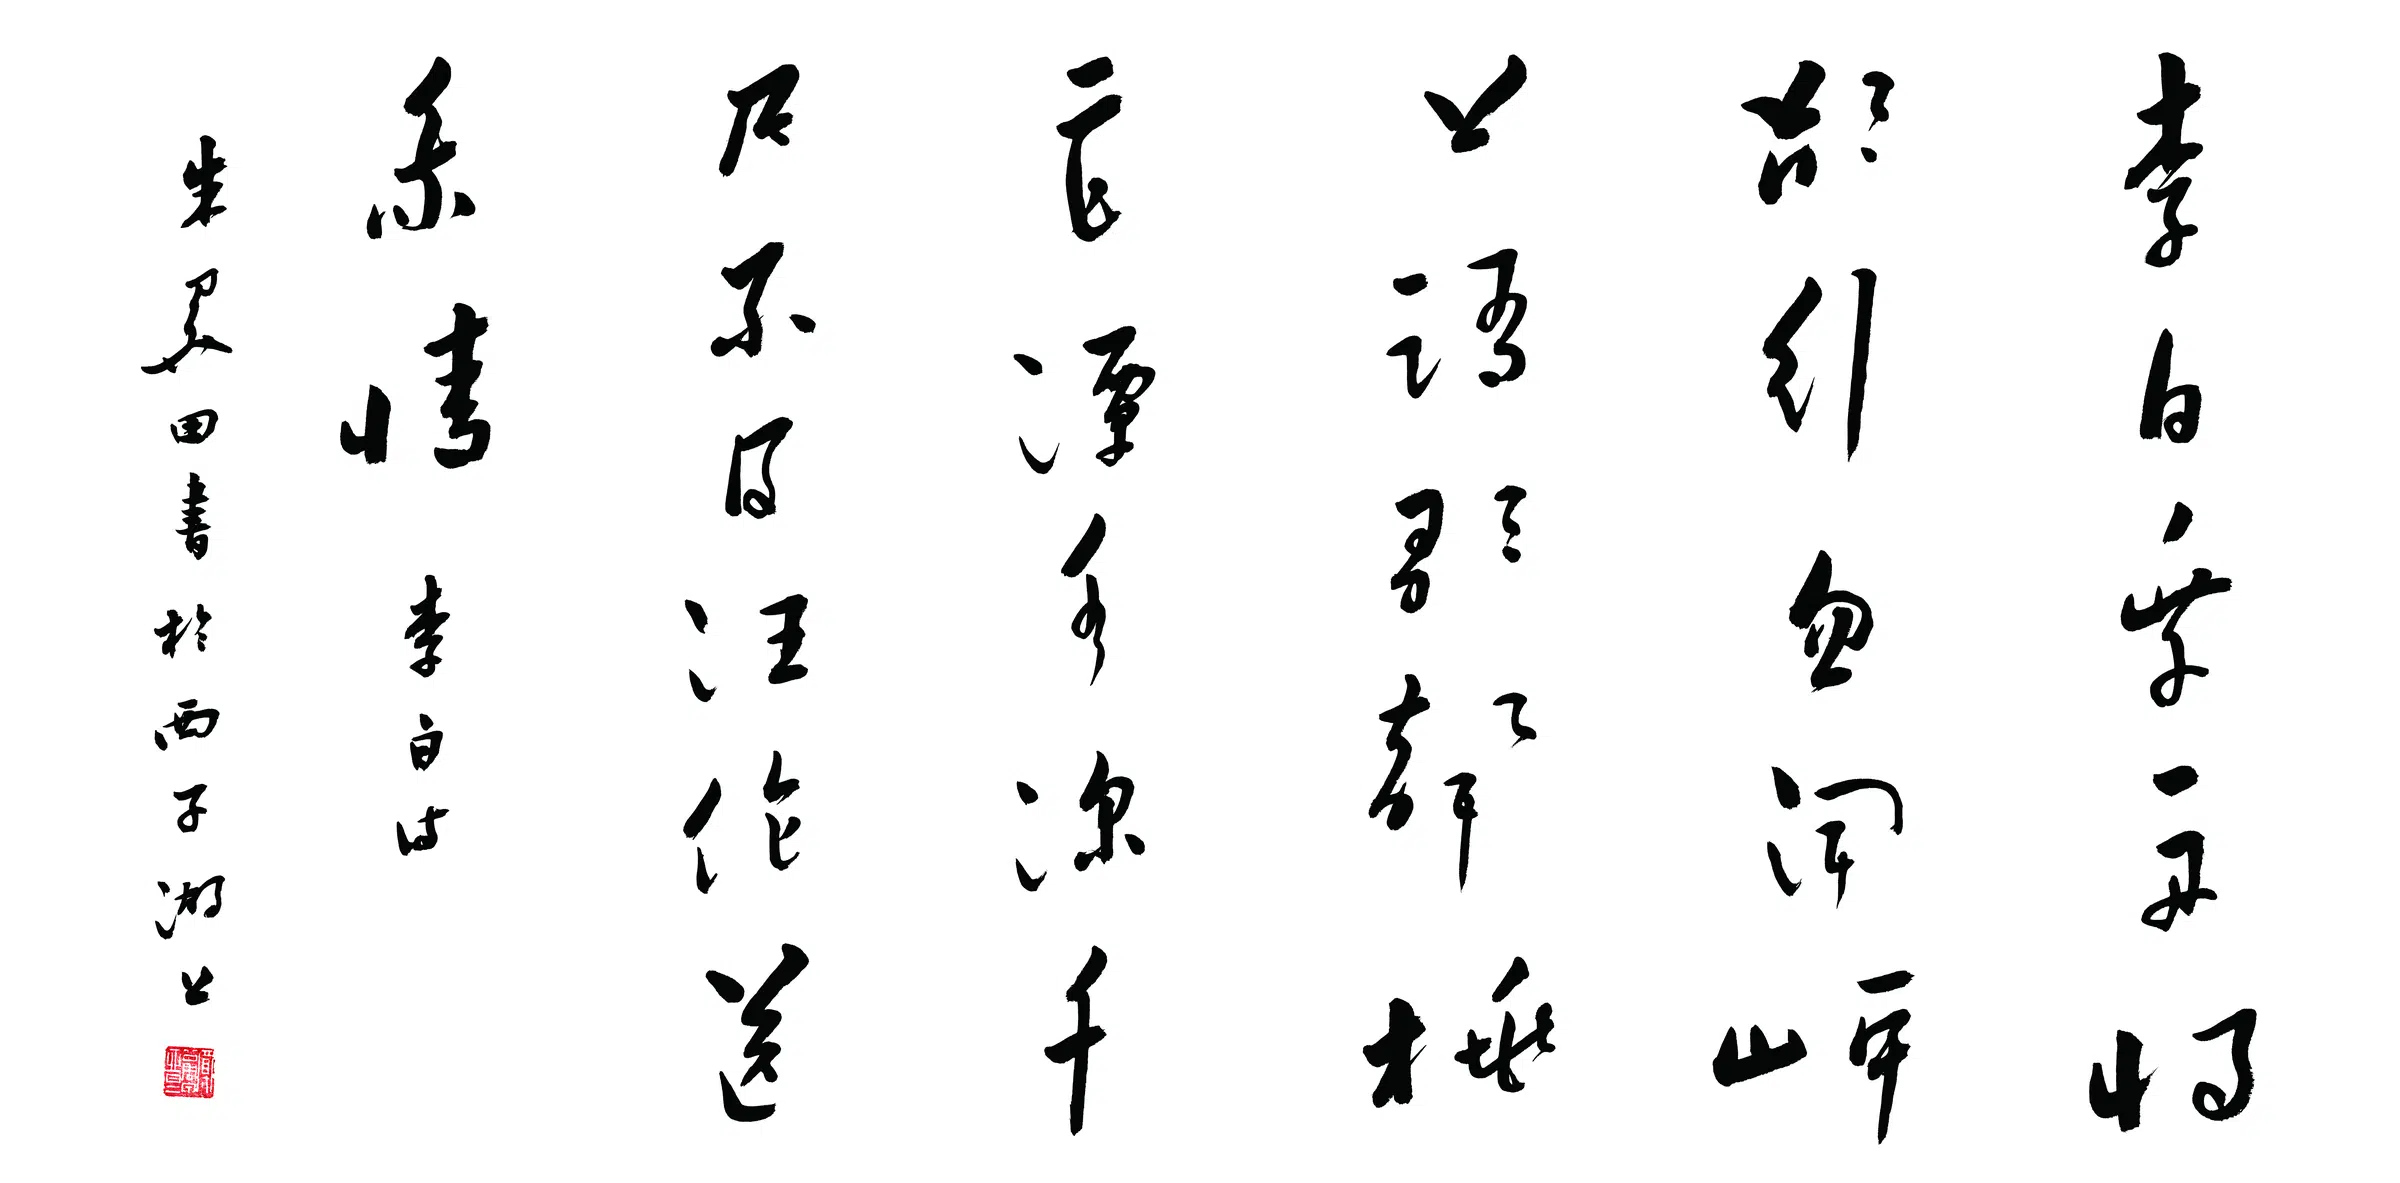 李白乘舟將
欲行忽聞岸
上踏歌聲桃
花潭水深千
尺不及汪倫送
我情 李白詩
朱田書於西子湖上